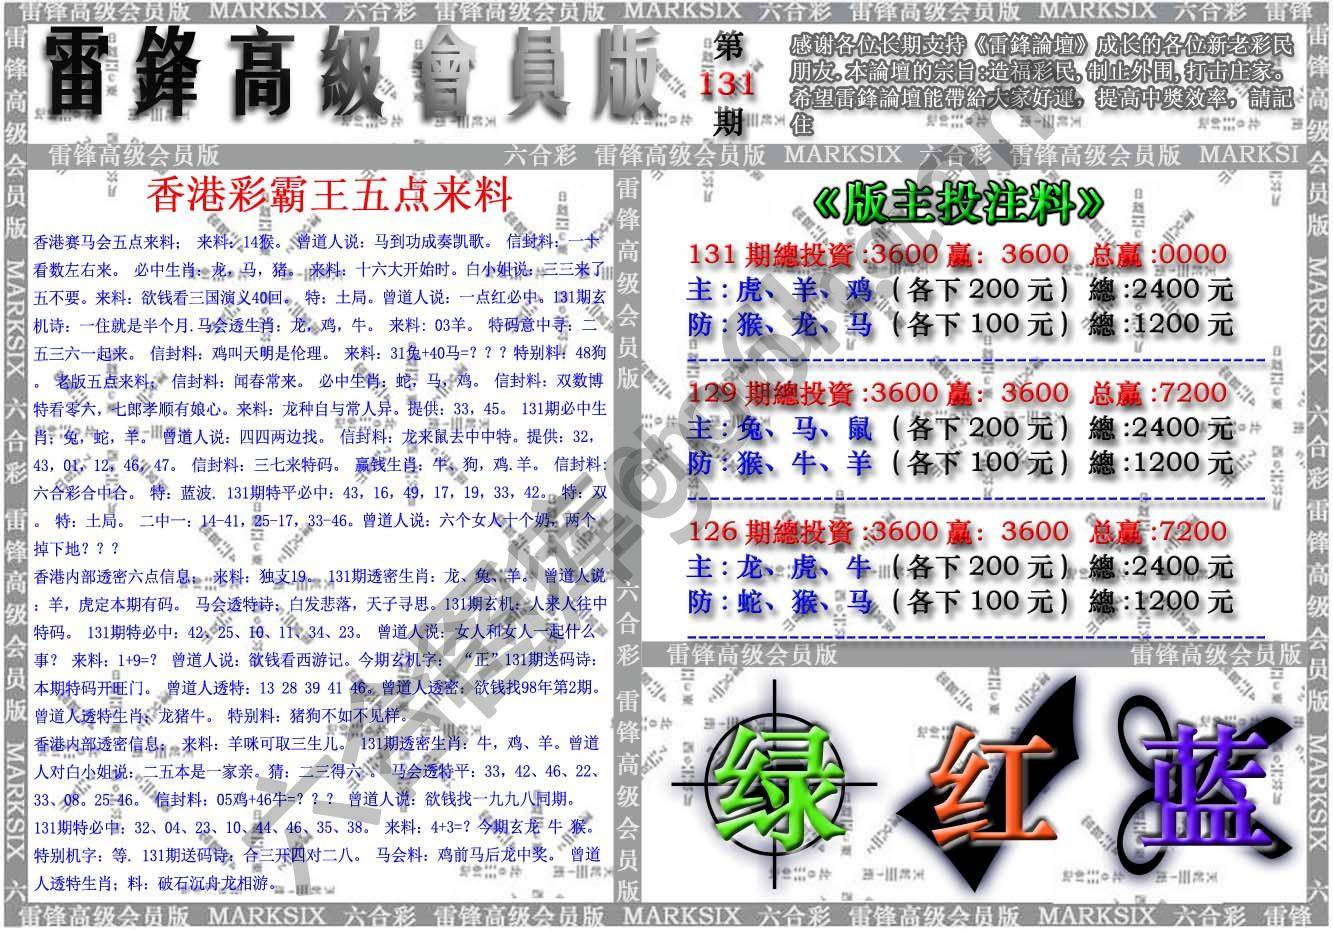 雷锋高级会员版 MARKSIX 六合彩 雷锋高级会员版 MARKSIX 六合彩 雷锋高级会员版 MARKSIX 六合彩 雷锋
雷鋒高級會員版
第
131
期
感谢各位长期支持《雷鋒論壇》成长的各位新老彩民
朋友.本論壇的宗旨:造福彩民,制止外围,打击庄家。
希望雷鋒論壇能帶給大家好運，提高中獎效率，請記
住
雷锋高级会员版 六合彩 雷锋高级会员版 MARKSIX 六合彩 雷锋高级会员版 MARKSI
香港彩霸王五点来料
香港赛马会五点来料； 来料：14猴。 曾道人说：马到功成奏凯歌。 信封料：一十
看数左右来。 必中生肖：龙，马，猪。 来料：十六大开始时。白小姐说：三三来了
五不要。来料：欲钱看三国演义40回。 特：土局。曾道人说：一点红必中。131期玄
机诗：一住就是半个月.马会透生肖：龙，鸡，牛。 来料：03羊。 特码意中寻：二
五三六一起来。 信封料：鸡叫天明是伦理。 来料：31兔+40马=？？？特别料：48狗
。 老版五点来料； 信封料：闻春常来。 必中生肖：蛇，马，鸡。 信封料：双数博
特看零六，七郎孝顺有娘心。来料：龙种自与常人异。提供：33，45。 131期必中生
肖：兔，蛇，羊。 曾道人说：四四两边找。 信封料：龙来鼠去中中特。提供：32，
43，01，12，46，47。 信封料：三七来特码。 赢钱生肖：牛，狗，鸡.羊。 信封料：
六合彩合中合。 特：蓝波. 131期特平必中：43，16，49，17，19，33，42。 特：双
。 特：土局。 二中一：14-41，25-17，33-46。曾道人说：六个女人十个奶，两个
掉下地？？？
香港内部透密六点信息； 来料：独支19。 131期透密生肖：龙、兔、羊。 曾道人说
：羊，虎定本期有码。 马会透特诗：白发悲落，天子寻思。131期玄机：人来人往中
特码。 131期特必中：42、25、10、11、34、23。 曾道人说：女人和女人一起什么
事？ 来料：1+9=？ 曾道人说：欲钱看西游记。今期玄机字： “正”131期送码诗：
本期特码开旺门。 曾道人透特：13 28 39 41 46。曾道人透密：欲钱找98年第2期。
曾道人透特生肖：龙猪牛。 特别料：猪狗不如不见样。
香港内部透密信息； 来料：羊咪可取三生儿。 131期透密生肖：牛，鸡、羊。曾道
人对白小姐说：二五本是一家亲。猜：二三得六 。 马会透特平：33，42、46、22、
33、08。25-46。 信封料：05鸡+46牛=？？？ 曾道人说：欲钱找一九九八同期。
131期特必中：32、04、23、10、44、46、35、38。 来料：4+3=？今期玄龙 牛 猴。
特别机字：等. 131期送码诗：合三开四对二八。 马会料：鸡前马后龙中奖。 曾道
人透特生肖；料：破石沉舟龙相游。
《版主投注料》
131 期總投資 :3600 赢：3600 总赢 :0000
主 : 虎、羊、鸡 （ 各下 200 元 ） 總 :2400 元
防 : 猴、龙、马 （ 各下 100 元 ） 總 :1200 元
129 期總投資 :3600 赢：3600 总赢 :7200
主 : 兔、马、鼠 （ 各下 200 元 ） 總 :2400 元
防 : 猴、牛、羊 （ 各下 100 元 ） 總 :1200 元
126 期總投資 :3600 赢：3600 总赢 :7200
主 : 龙、虎、牛 （ 各下 200 元 ） 總 :2400 元
防 : 蛇、猴、马 （ 各下 100 元 ） 總 :1200 元
雷锋高级会员版 雷锋高级会员版
绿 红 蓝
雷锋高级会员版 MARKSIX 六合彩 雷锋高级会员版 MARKSIX 六
雷锋高级会员版 六合彩 雷锋高级会员版
雷锋高级会员版 MARKSIX 六合彩 雷锋高级会员版 MARKSIX 六
雷锋高级会员版 MARKSIX 六合彩 雷锋高级会员版 MARKSIX 六合彩 雷锋高级会员版 MARKSIX 六合彩 雷锋